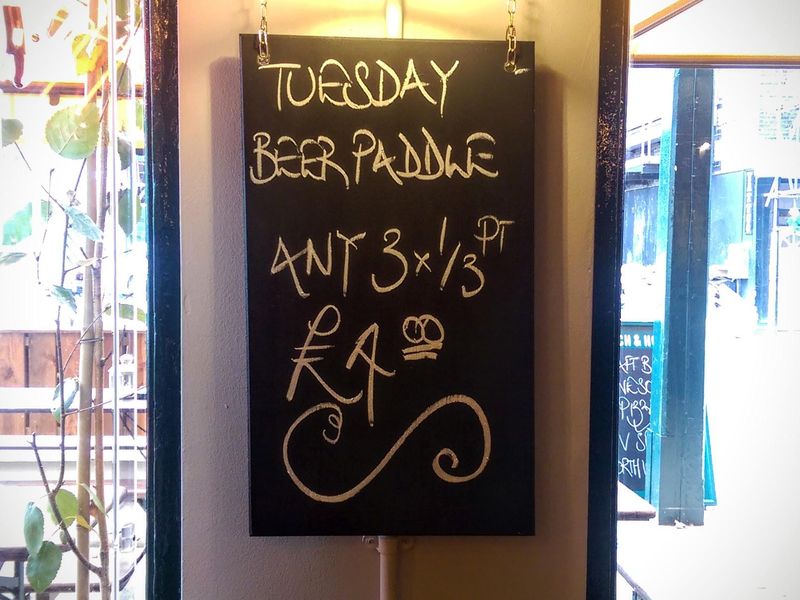 TUESDAY
BEER PADDLE
ANY 3 x 1/3 PT
£4 00